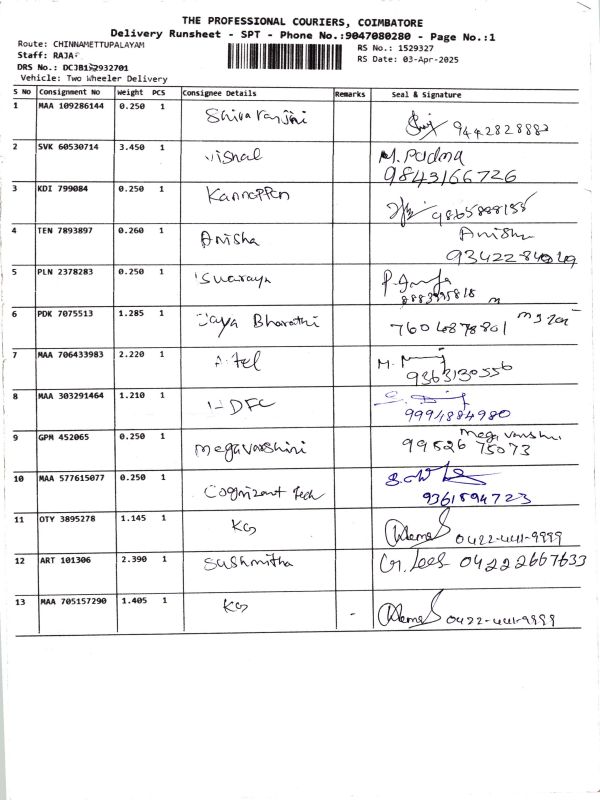 THE PROFESSIONAL COURIERS, COIMBATORE
Delivery Runsheet - SPT - Phone No.:9047080280 - Page No.:1
Route: CHINNAMETTUPALAYAM RS No.: 1529327
Staff: RAJA RS Date: 03-Apr-2025
DRS No.:
Vehicle: Two Wheeler Delivery
S No Consignment No Weight PCS Consignee Details Remarks Seal & Signature
1 MAA 109286144 0.250 1 Shivaranjini 9442828882
2 SVK 60530714 3.450 1 vishal M. Padma
9843166726
3 KDI 799084 0.250 1 Kannappan
4 TEN 7893897 0.260 1 Anisha Anisha
5 PLN 2378283 0.250 1
6 PDK 7075513 1.285 1 Jaya Bharathi
7 MAA 706433983 2.220 1 M.
9363130556
8 MAA 303291464 1.210 1 HDFC
9994884980
9 GPM 452065 0.250 1 megavarshini megavarshini
99526 75073
10 MAA 577615077 0.250 1 Cognizant Tech
9361894723
11 OTY 3895278 1.145 1 KG 0422-441-9999
12 ART 101306 2.390 1 Sushmitha 04222667633
13 MAA 705157290 1.405 1 KG - 0422-441-9999